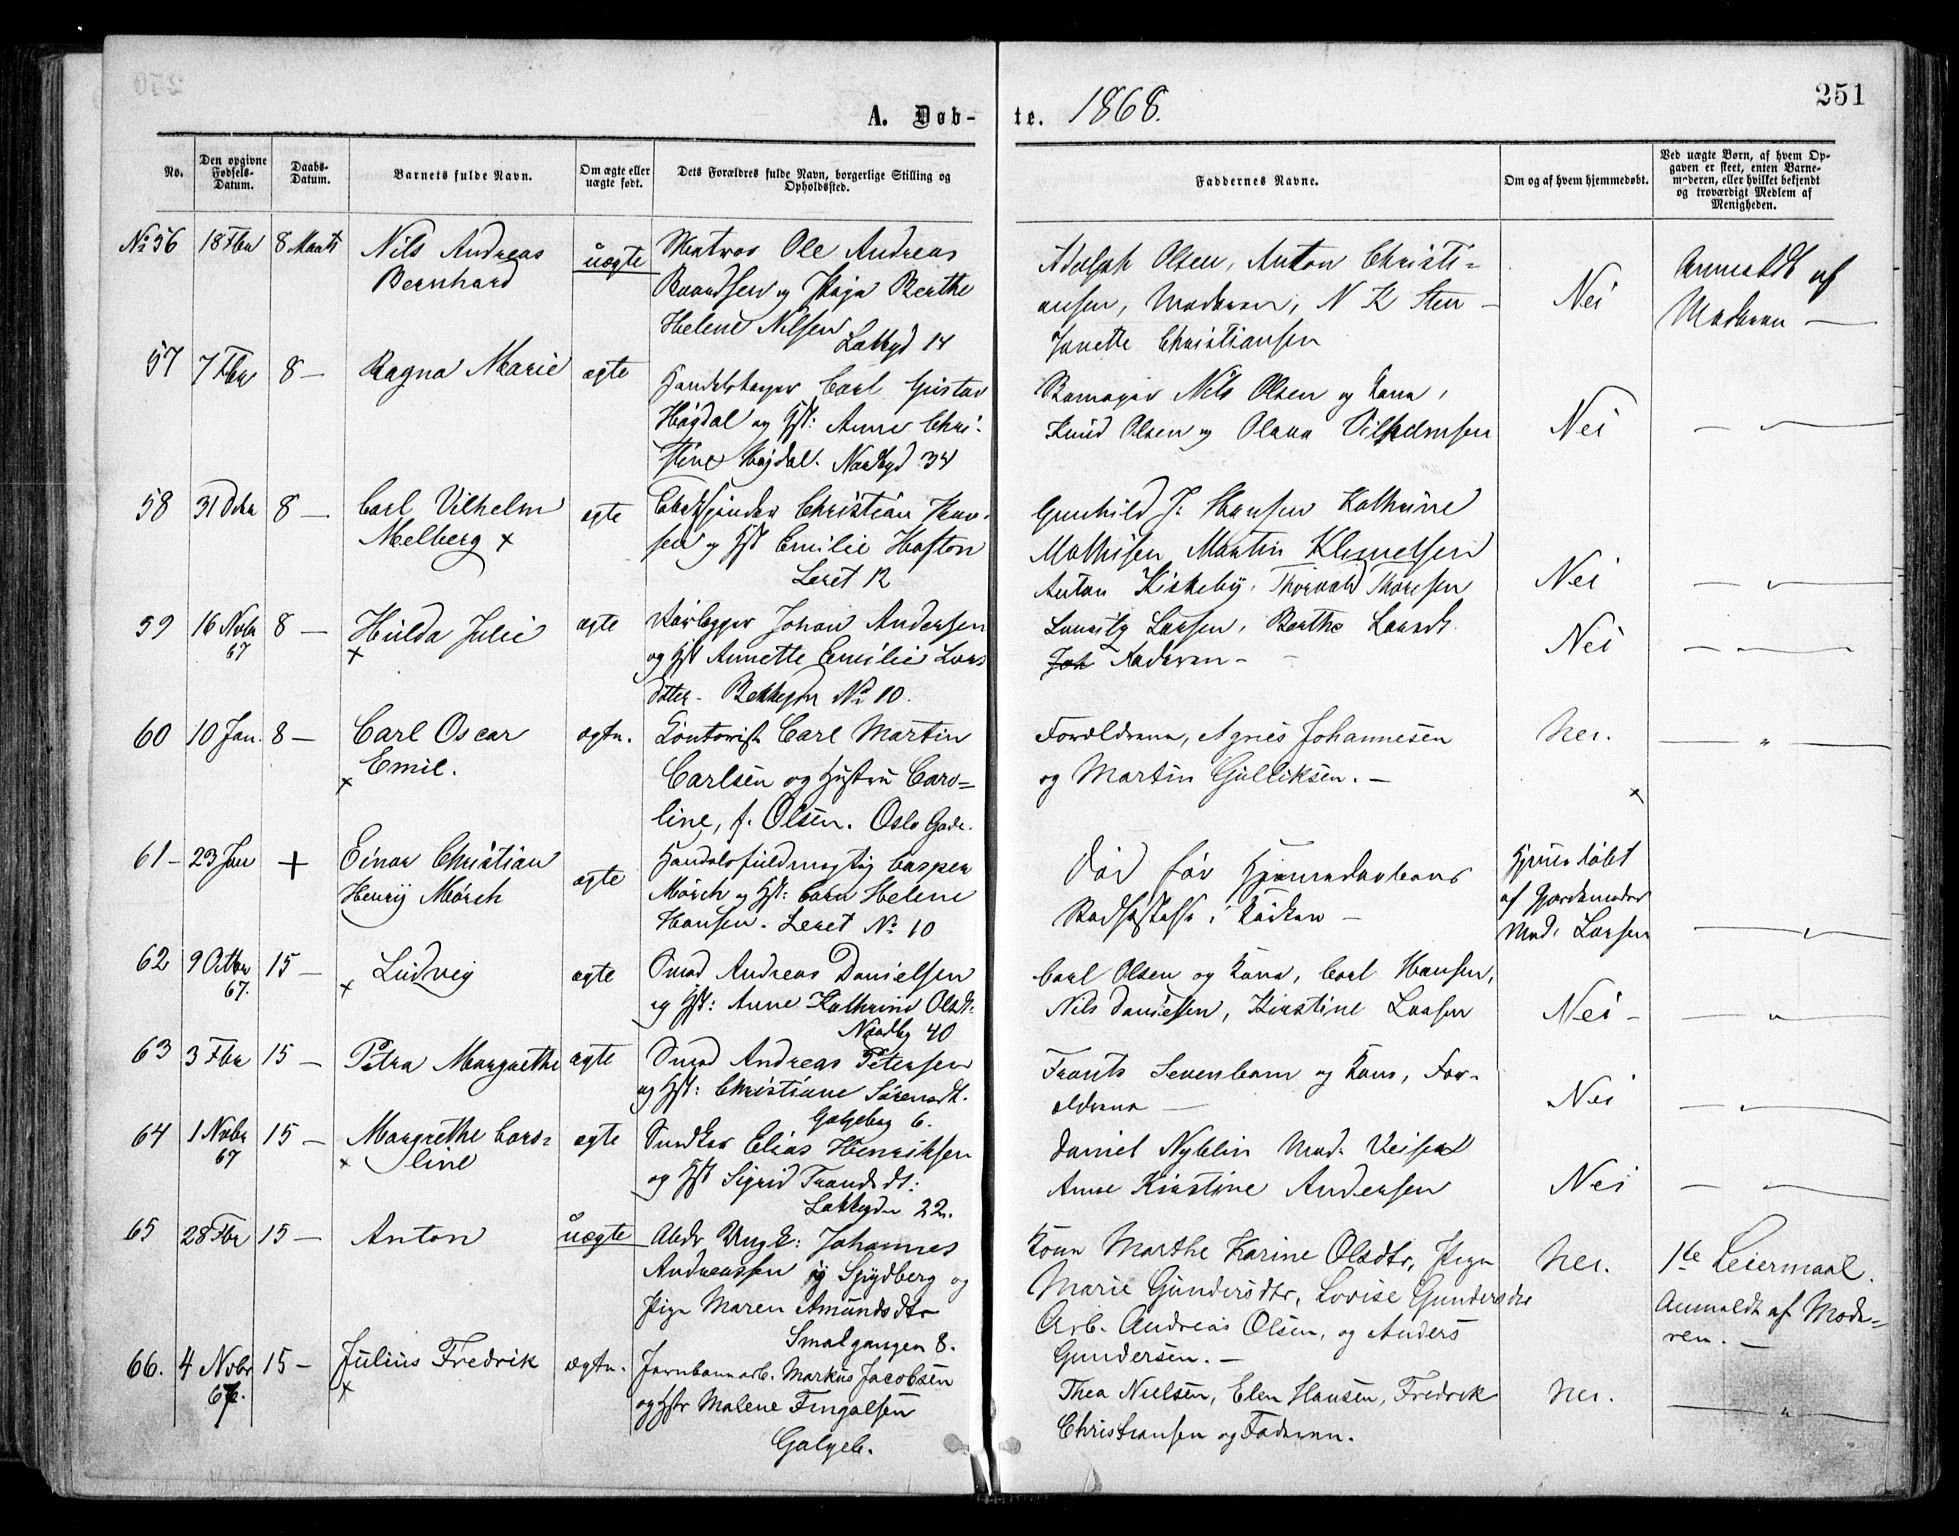 251
A. Døb-
te. 1868.
No.
Den opgivne Fødsels-Datum.
Daabs-Datum.
Barnets fulde Navn.
Om ægte eller uægte født.
Dets Forældres fulde Navn, borgerlige Stilling og Opholdssted.
Faddernes Navne.
Om og af hvem hjemmedøbt.
Ved uægte Børn, af hvem Op-
gaven er skeet, enten Barne-
moderen, eller hvilket bekjendt
og troværdigt Medlem af
Menigheden.
No 56 18 Fbr 8 Marts Nils Andreas uægte Matros Ole Andreas
Bernhard
og Pige Berthe
Helene Nilsen
Lakkgd 14
Adolph Olsen, Anton Christi-
ansen, Moderen, N K Sten
Janette Christiansen
Nei
Anmeldt af
Moderen —
57 7 Fbr 8 — Ragna Marie ægte
Carl Gustav
Høgdal og Hst: Anne Chri-
stine Høgdal. Nordbyd 34
Nils Olsen og Kone,
Knud Olsen og Olava Vilhelmsen
Nei
— " —
58 31 Dcbr 8 — Carl Vilhelm ægte
Melberg x
Christian Han-
sen og Hst Emilie Hafton
Leret 12
Gunhild J. Hansen Kathrine
Mathisen Martin Klemetsen
Anton Kirkeby, Thorvald Thoresen
Nei
— " —
59 16 Nvbr 67 8 — Hulda Julie x ægte
Johan Andersen
og Hst Annette Emilie Lars
dotter. No 10.
Larsen, Berthe Larsdt.
Joh Faderen —
Nei
— " —
60 10 Jan. 8 — Carl Oscar ægte. Contorist Carl Martin
x Emil.
Carlsen og Hustru Caro-
line, f. Olsen. Oslo Gade.
Forældrene, Agnes Johannesen
og Martin Gulliksen. —
Nei.
x
— " —
61 — 23 Jan + Einar Christian ægte Handelsfuldmægtig Casper
Henrij Mørch
Mørch og Hst: Helene
Hansen. Leret No 10
Død før Hjemmedaabens
Stadfæstelse i Kirken —
Hjemmedøbt
af Gjordemoder
Mad. Larsen
— " —
62 9 Octbr 67. 15 — x Ludvig ægte Smed Andreas Danielsen
og Hst: Anne Kathrine Olsdt:
Nordby 40
Carl Olsen og Kone, Carl Hansen,
Nils Danielsen, Kirstine Larsen
Nei —
— " —
63 3 Fbr 15 — Petra Margrethe ægte Smed Andreas Petersen
og Hst: Christiane Sørensdt.
Galgebg 6.
Frants Sevenbom og Kone, For-
ældrene —
Nei
— " —
64 1 Nvbr 67 15 — Margrethe Caro- ægte Snedker Elias Henriksen
x line
og Hst Sigrid Trondsdt:
Lakkegd 22.
Daniel Nyblin Mad.
Anne Kirstine Andersen
Nei
— " —
65 28 Fbr 15 — Anton uægte Ungk: Johannes
Andreassen i Spydberg og
Pige Maren Amundsdtr
Smalgangen 8.
Kone Marthe Karine Olsdtr, Pige
Marie Gundersdtr, Lovise Gundersdtr
Arb. Andreas Olsen, og Anders
Gundersen. —
Nei.
1te Leiermaal.
Anmeldt af Mode-
ren. —
66. 4 Nvbr 67. 15 — Julius Fredrik x ægte. Jernbanearb. Markus Jacobsen
og Hstr Malene Fingalsen
Galgeb.
Thea Nielsen, Elen Hansen, Fredrik
Christiansen og Faderen.
Nei.
— " —